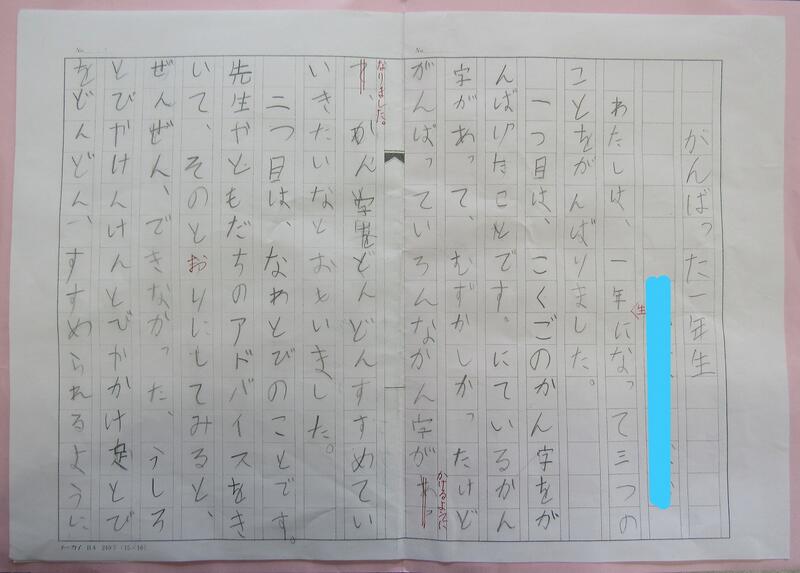 がんばった一年生
わたしは、一年生になって三つの
ことをがんばりました。
一つ目は、こくごのかん字をが
んばったことです。にているかん
字があって、むずかしかったけど
がんばっていろんなかん字が
かけるように
なりました。
、かん字をどんどんすすめてい
いきたいなとおもいました。
二つ目は、なわとびのことです。
先生やともだちのアドバイスをき
いて、そのとおりにしてみると、
ぜんぜん、できなかった、うしろ
とびやけんけんとびかかけ足とび
をどんどん、すすめられるように
No.
No.